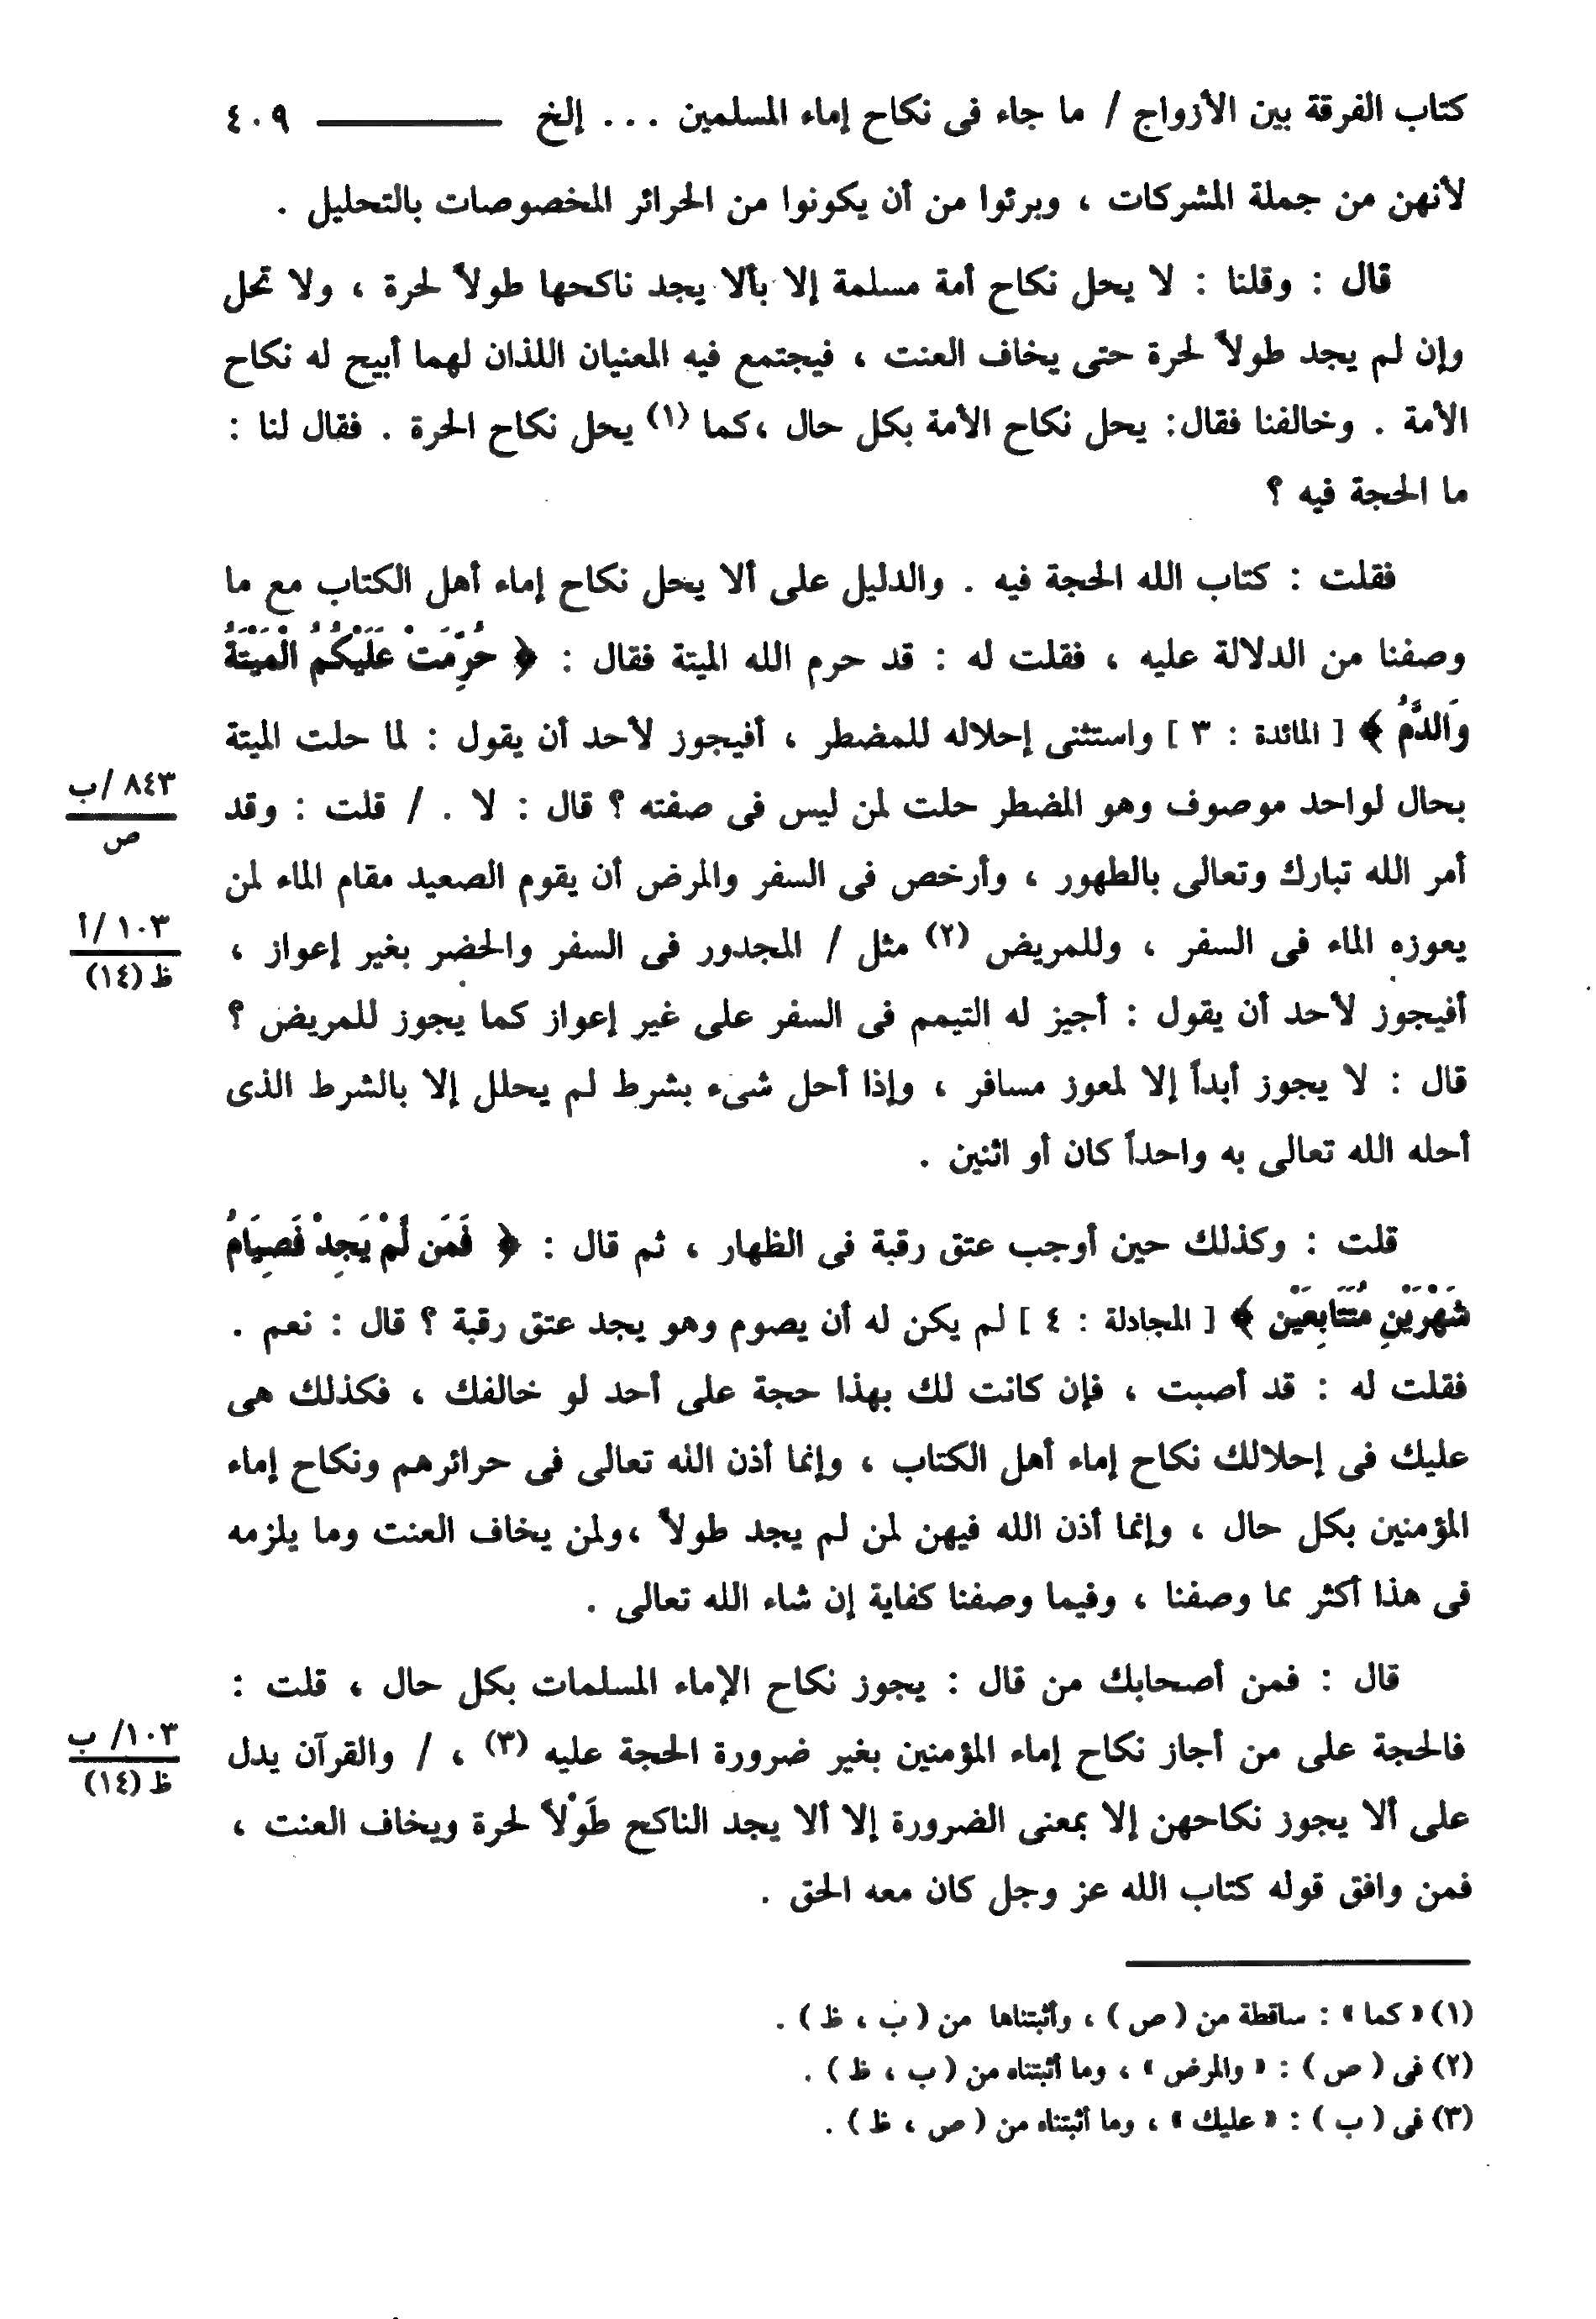 كتاب الفرقة بين الأزواج / ما جاء فى نكاح إماء المسلمين . . . إلخ ــــــــ ٤٠٩
لأنهن من جملة المشركات ، وبرئوا من أن يكونوا من الحرائر المخصوصات بالتحليل .
قال : وقلنا : لا يحل نكاح أمة مسلمة إلا بألا يجد ناكحها طولاً لحرة ، ولا تحل
وإن لم يجد طولاً لحرة حتى يخاف العنت ، فيجتمع فيه المعنيان اللذان لهما أبيح له نكاح
الأمة . وخالفنا فقال: يحل نكاح الأمة بكل حال ،كما (١) يحل نكاح الحرة . فقال لنا :
ما الحجة فيه ؟
فقلت : كتاب الله الحجة فيه . والدليل على ألا يحل نكاح إماء أهل الكتاب مع ما
وصفنا من الدلالة عليه ، فقلت له : قد حرم الله الميتة فقال : ﴿ حُرِّمَتْ عَلَيْكُمُ الْمَيْتَةُ
وَالدَّمُ ﴾ [ المائدة : ٣ ] واستثنى إحلاله للمضطر ، أفيجوز لأحد أن يقول : لما حلت الميتة
بحال لواحد موصوف وهو المضطر حلت لمن ليس فى صفته ؟ قال : لا . / قلت : وقد
٨٤٣ /ب
ص
أمر الله تبارك وتعالى بالطهور ، وأرخص فى السفر والمرض أن يقوم الصعيد مقام الماء لمن
يعوزه الماء فى السفر ، وللمريض (٢) مثل / المجدور فى السفر والحضر بغير إعواز ،
١٠٣ /أ
ظ (١٤)
أفيجوز لأحد أن يقول : أجيز له التيمم فى السفر على غير إعواز كما يجوز للمريض ؟
قال : لا يجوز أبداً إلا لمعوز مسافر ، وإذا أحل شىء بشرط لم يحلل إلا بالشرط الذى
أحله الله تعالى به واحداً كان أو اثنين .
قلت : وكذلك حين أوجب عتق رقبة فى الظهار ، ثم قال : ﴿ فَمَن لَّمْ يَجِدْ فَصِيَامُ
شَهْرَيْنِ مُتَتَابِعَيْنِ ﴾ [ المجادلة : ٤ ] لم يكن له أن يصوم وهو يجد عتق رقبة ؟ قال : نعم .
فقلت له : قد أصبت ، فإن كانت لك بهذا حجة على أحد لو خالفك ، فكذلك هى
عليك فى إحلالك نكاح إماء أهل الكتاب ، وإنما أذن الله تعالى فى حرائرهم ونكاح إماء
المؤمنين بكل حال ، وإنما أذن الله فيهن لمن لم يجد طولاً ،ولمن يخاف العنت وما يلزمه
فى هذا أكثر مما وصفنا ، وفيما وصفنا كفاية إن شاء الله تعالى .
قال : فمن أصحابك من قال : يجوز نكاح الإماء المسلمات بكل حال ، قلت :
فالحجة على من أجاز نكاح إماء المؤمنين بغير ضرورة الحجة عليه (٣) ، / والقرآن يدل
١٠٣/ ب
ظ (١٤)
على ألا يجوز نكاحهن إلا بمعنى الضرورة إلا ألا يجد الناكح طَوْلاً لحرة ويخاف العنت ،
فمن وافق قوله كتاب الله عز وجل كان معه الحق .
(١) « كما » : ساقطة من ( ص ) ، وأثبتناها من ( ب ، ظ ) .
(٢) فى ( ص ) : « والمرض » ، وما أثبتناه من ( ب ، ظ ) .
(٣) فى ( ب ) : « عليك » ، وما أثبتناه من ( ص ، ظ ) .